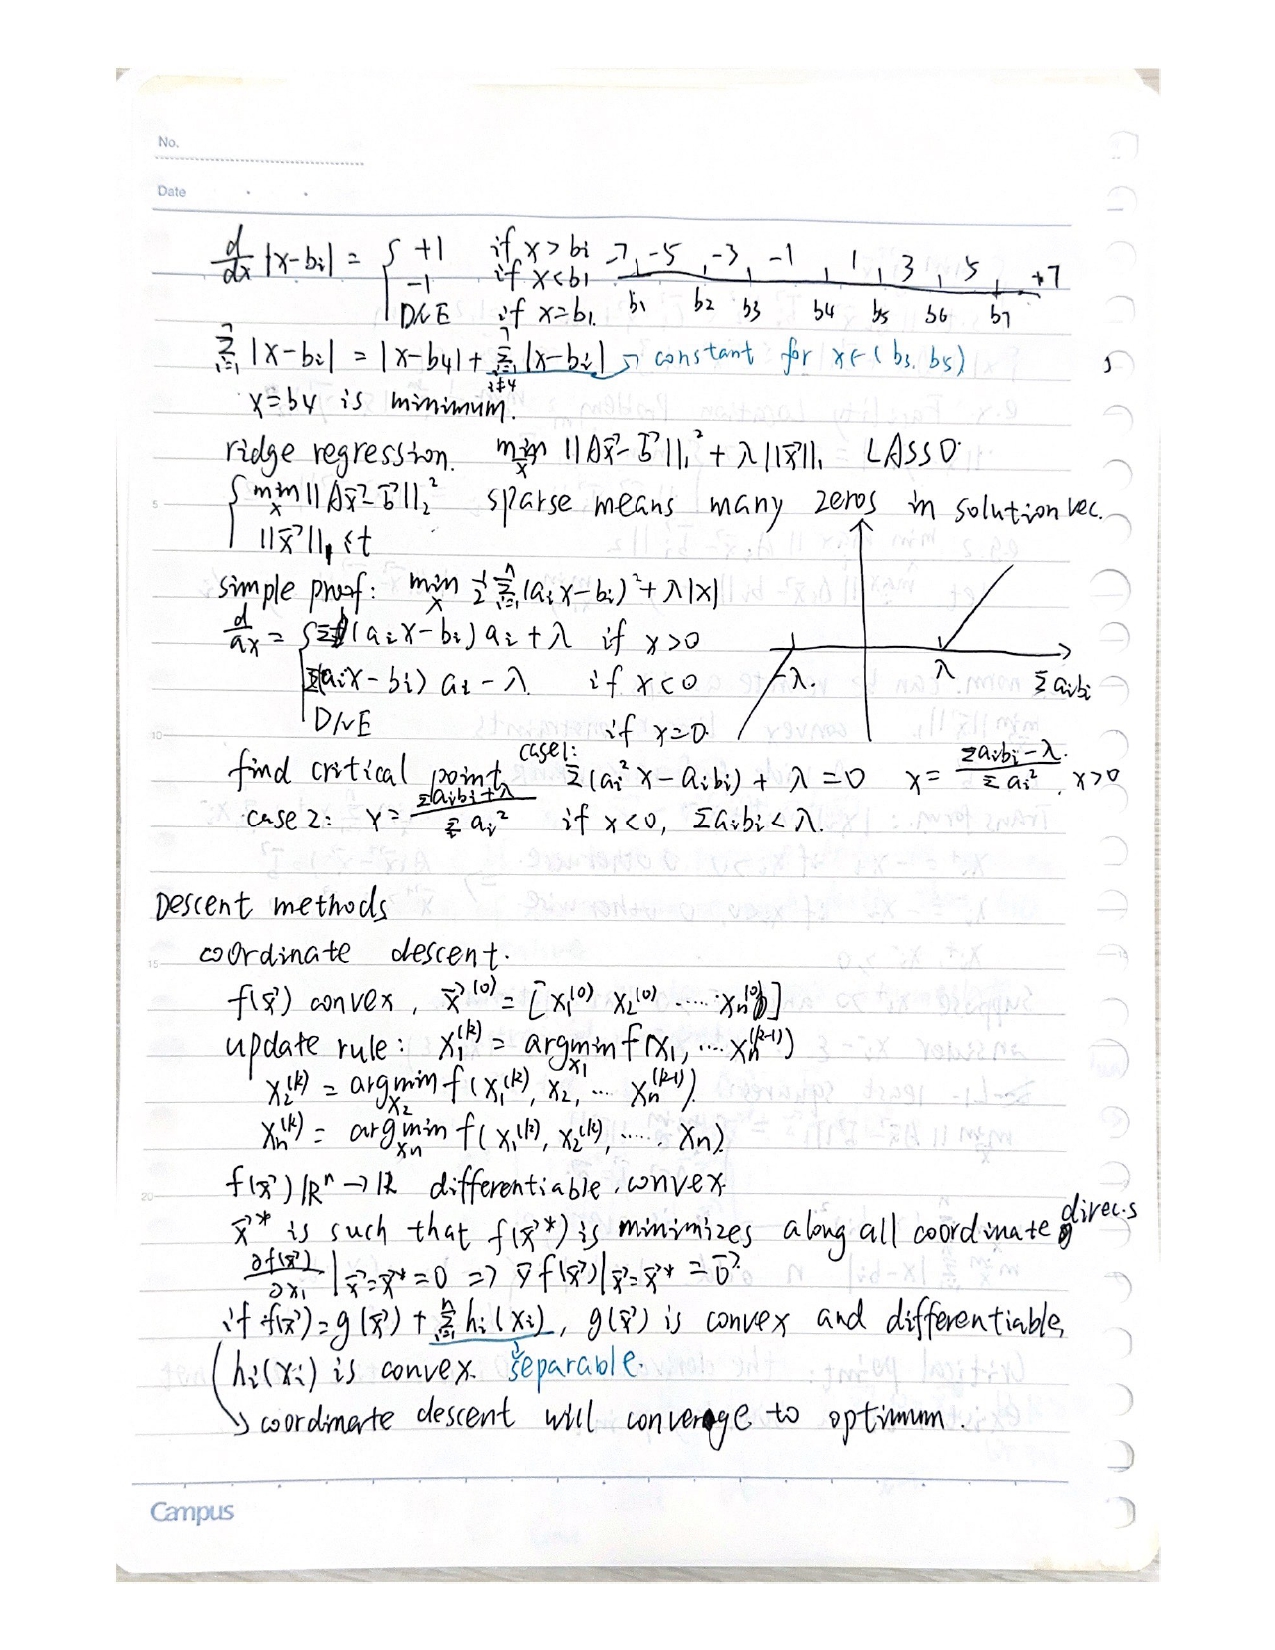 No.
Date
d/dx |x-bi| = { +1 if x > bi -7 -5 -3 -1 1 3 5 +7
-1 if x < bi b1 b2 b3 b4 b5 b6 b7
DNE if x=bi.
7 Σ i=1 |x-bi| = |x-b4| + 7 Σ i=1 i≠4 |x-bi| → constant for x∈(b3, b5)
x=b4 is minimum.
ridge regression. min x ||Ax⃗-b⃗||₁² + λ||x⃗||₁ LASSO.
{ min x ||Ax⃗-b⃗||₂² sparse means many zeros in solution vec.
||x⃗||₁ ≤t
simple proof: min x 1/2 n Σ i=1 (aix-bi)² + λ|x|
d/dx = { Σ (aix-bi) ai + λ if x>0
Σ(aix-bi) ai - λ if x<0
DNE if x=0
-λ. λ Σ aibi
find critical point case1: Σ(ai²x-aibi) + λ = 0 x= (Σaibi-λ)/(Σ ai²), x>0
case 2: x= (Σaibi+λ)/(Σ ai²) if x<0, Σaibi < λ.
Descent methods
coordinate descent.
f(x⃗) convex, x⃗⁽⁰⁾ = [x1⁽⁰⁾ x2⁽⁰⁾ ..... xn⁽⁰⁾]
update rule: x1⁽ᵏ⁾ = argmin x1 f(x1, ... xn⁽ᵏ⁻¹⁾)
x2⁽ᵏ⁾ = argmin x2 f(x1⁽ᵏ⁾, x2, ... xn⁽ᵏ⁻¹⁾).
xn⁽ᵏ⁾ = argmin xn f(x1⁽ᵏ⁾, x2⁽ᵏ⁾, ..... xn).
f(x⃗) ℝⁿ → ℝ differentiable, convex
x⃗* is such that f(x⃗*) is minimizes along all coordinate direc.s
∂f(x⃗)/∂x1 |x⃗=x⃗* = 0 => ∇f(x⃗)|x⃗=x⃗* = 0⃗
if f(x⃗)=g(x⃗) + n Σ i=1 hi(xi), g(x⃗) is convex and differentiable,
hi(xi) is convex. separable.
↳ coordinate descent will converge to optimum.
5
10
15
20
Campus